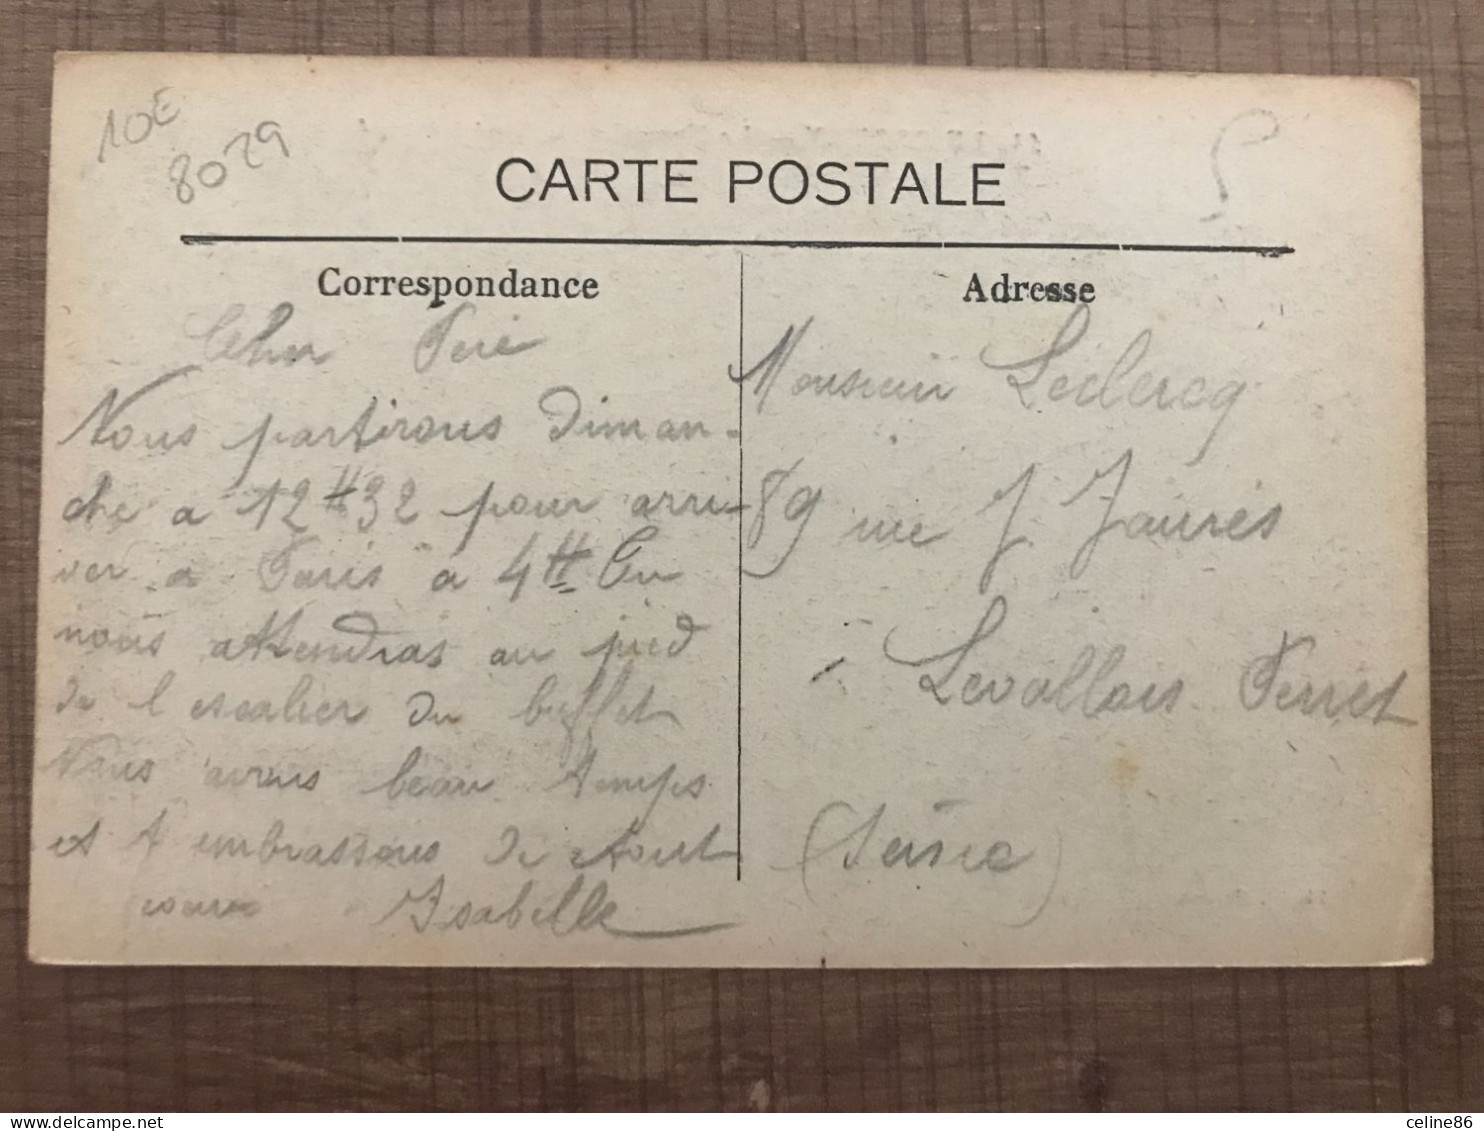 10E
8029
CARTE POSTALE
Correspondance
Cher Père
Nous partirons Diman-
che a 12H32 pour arri-
ver a Paris a 4H Tu
nous attendras au pied
de l escalier du buffet
Nous avons beau temps
et t embrassons de tout
coeur Isabelle
Adresse
Monsieur Leclercq
89 rue J. Jaurès
à Levallois Perret
(Seine)
celine86